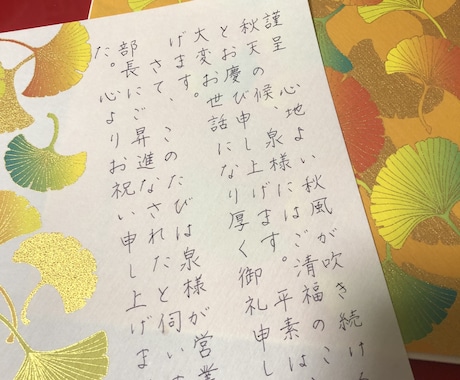 謹呈 心地よい秋風が吹き続け
秋天の候、泉様にはご清福のこ
とお慶び申し上げます。平素は
大変お世話になり厚く御礼申し
げます。
さて、このたびは泉様が営業
部長にご昇進なされたと伺い
た。心よりお祝い申し上げま